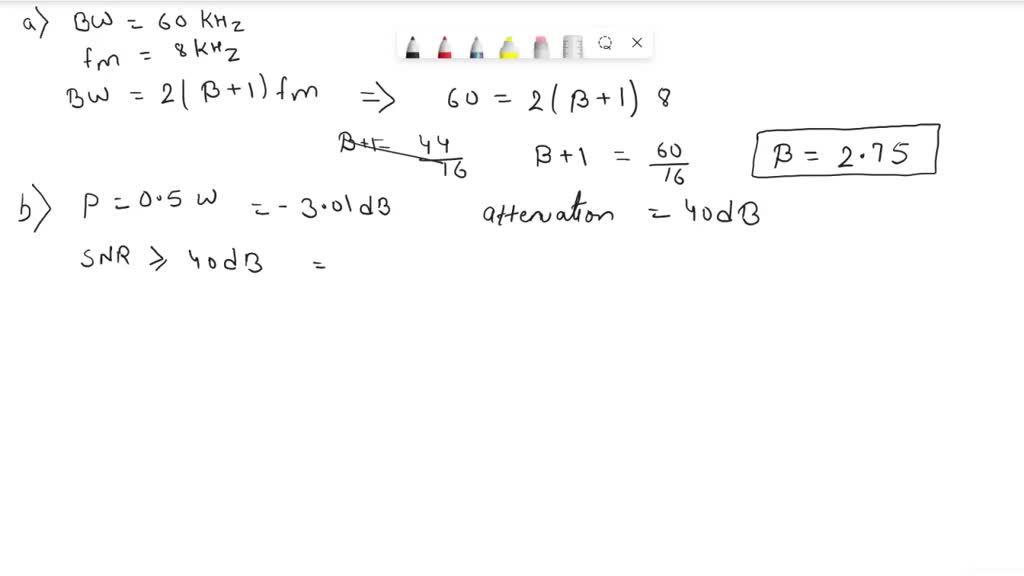 a) BW = 60 KHz
fm = 8 KHz
BW = 2(β+1)fm => 60 = 2(β+1) 8
β+1= 44/16 β+1 = 60/16 β = 2.75
b) P = 0.5 W = -3.01dB attenation = 40dB
SNR ≥ 40dB =